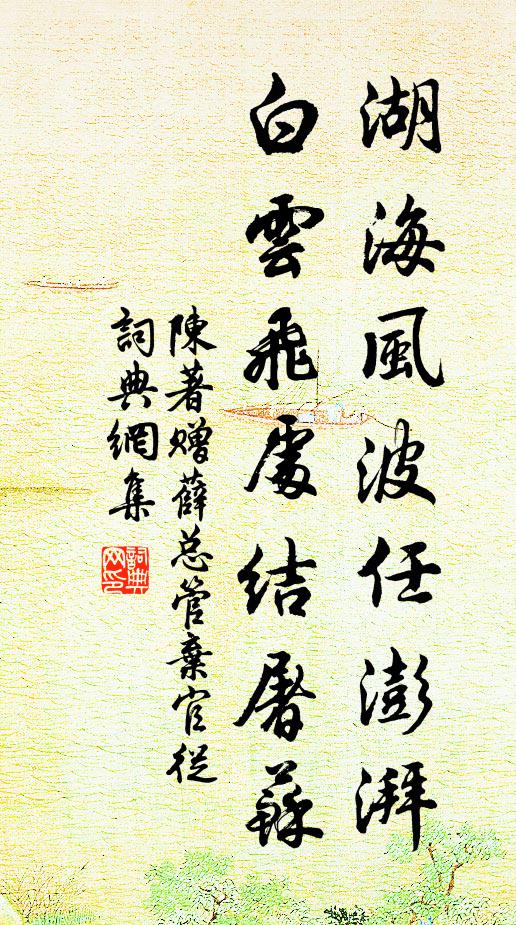 湖海風波任澎湃
白雲飛處結屠蘇
陳著贈薛总管棄官從
詞典網集
詞典网印